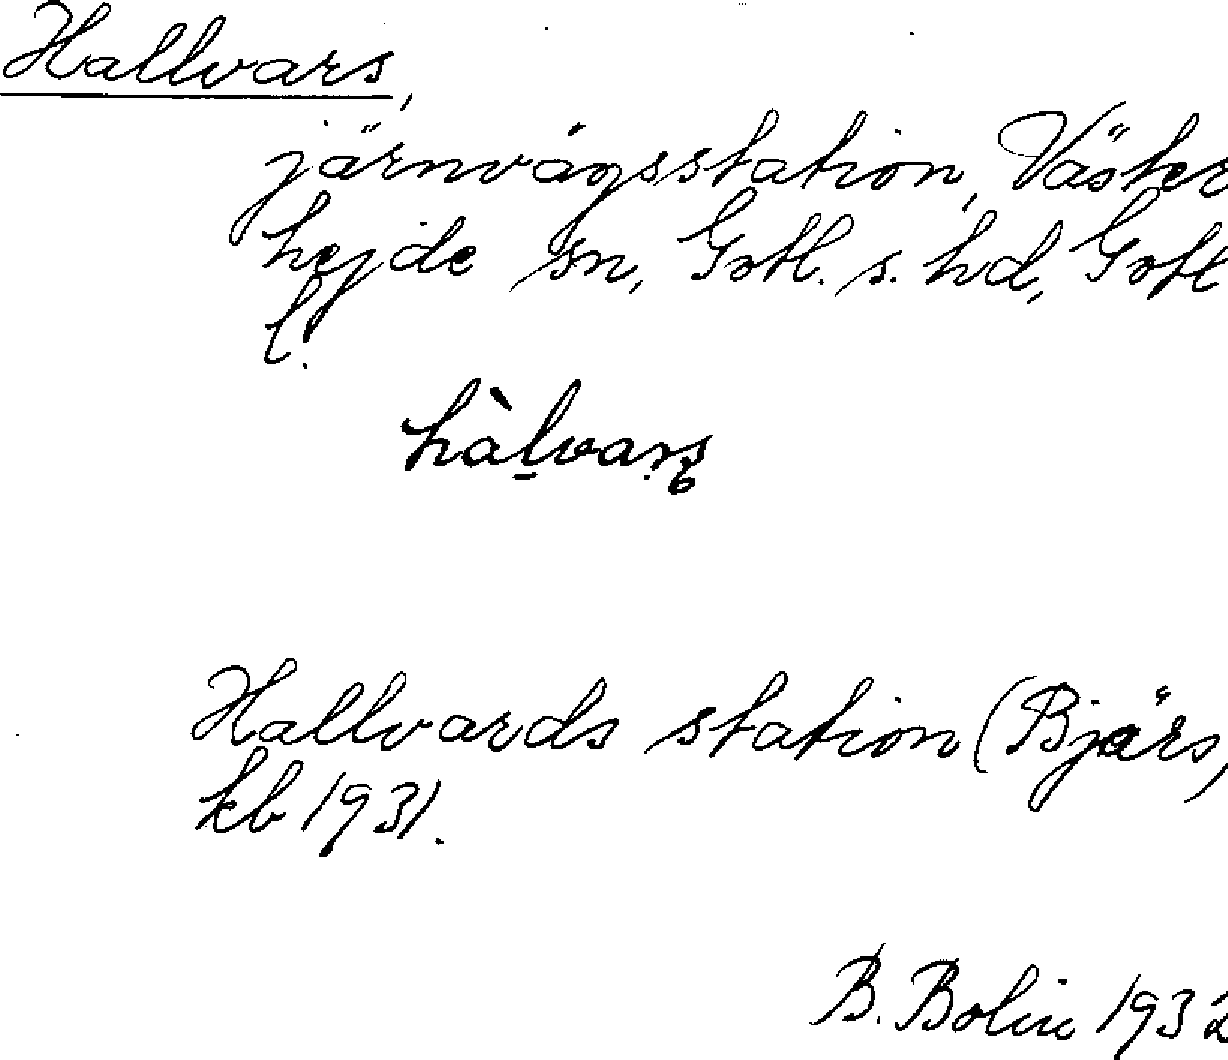 Hallvars,
järnvägsstation, Väster
hejde sn, Gotl. s. hd, Gotl
l.
hàl̠varş
Hallvards station (Bjärs,
kb 1931.
B. Bolin 1932